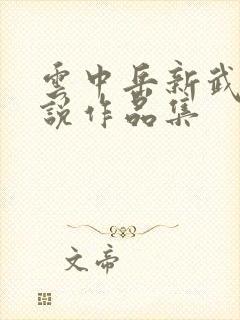 雲中岳新武
說作品集
文帝